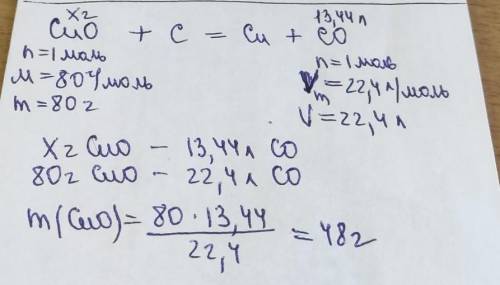 x г 13,44 л
CuO + C = Cu + CO
n = 1 моль n = 1 моль
M = 80 г/моль Vm = 22,4 л/моль
m = 80 г V = 22,4 л
X г CuO — 13,44 л CO
80 г CuO — 22,4 л CO
m(CuO) = 80 · 13,44 / 22,4 = 48 г